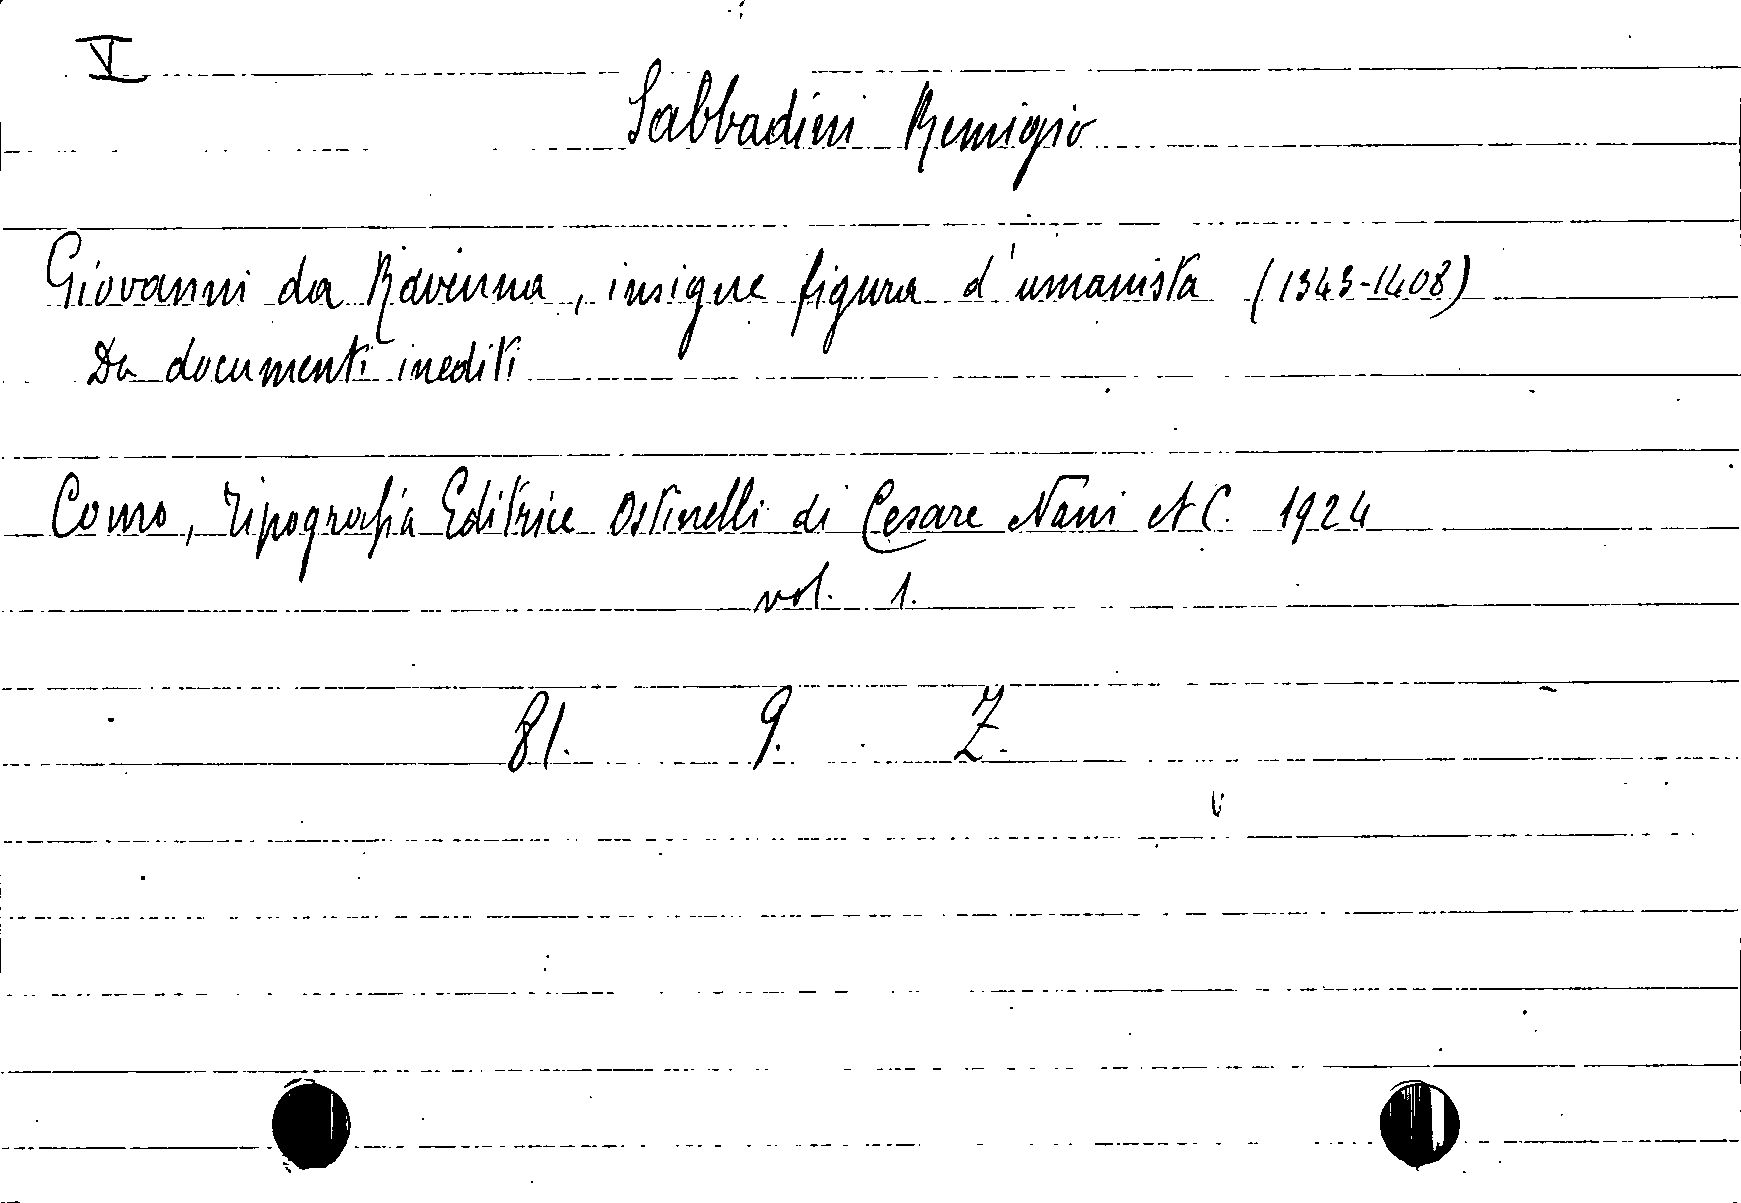 V
Sabbadini Remigio
Giovanni da Ravenna, insigne figura d'umanista (1343-1408)
Da documenti inediti
Como, Tipografia Editrice Ostinelli di Cesare Nani et C. 1924
vol. 1.
81. 9. Z.